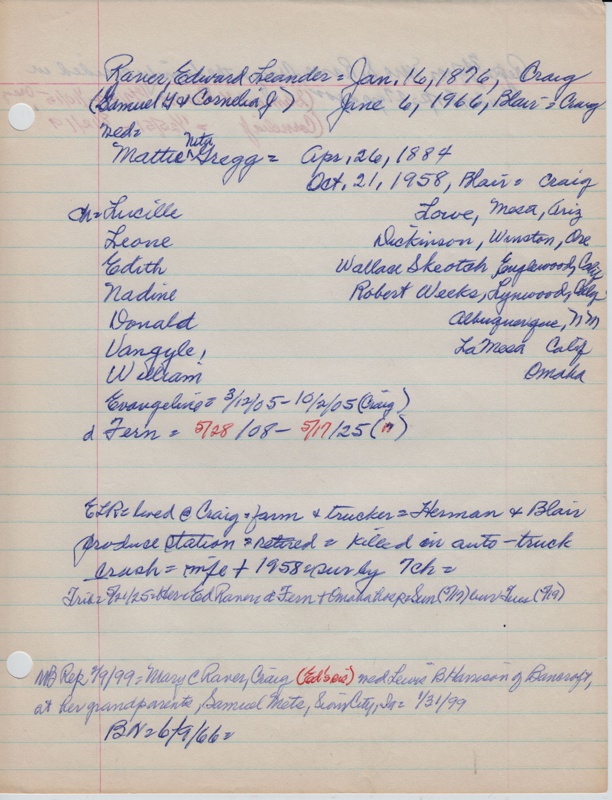 Raver, Edward Leander = Jan. 16, 1876, Craig
(Samuel G & Cornelia J) June 6, 1966, Blair = Craig
med=
Mattie Neta Gregg = Apr. 26, 1884
Oct. 21, 1958, Blair = Craig
ch = Lucille Lowe, Mesa, Ariz
Leone Dickinson, Winston, Ore
Edith Wallace Skeotch Englewood, Calif
Nadine Robert Weeks, Lynwood, Calif
Donald Albuquerque, N M
Vangyle, La Mesa Calif
William Omaha
Evangeline = 3/12/05 - 10/2/05 (Craig)
d Fern = 5/28/08 - 5/17/25 (")
ELR = lived @ Craig = farm & trucker = Herman & Blair
produce station = retired = killed in auto-truck
crash = wife + 1958 = sur by 7ch =
Trib = = Her = Ed Ravers d Fern + Omaha hosp = Sun bur Tues
NB Rep 2/9/99 = Mary C Raver, Craig (Ed's sis) med Lewis B Harrison of Bancroft,
at her grandparents, Samuel Metz, Sioux City, Ia = 1/31/99
BN = 6/9/66 =